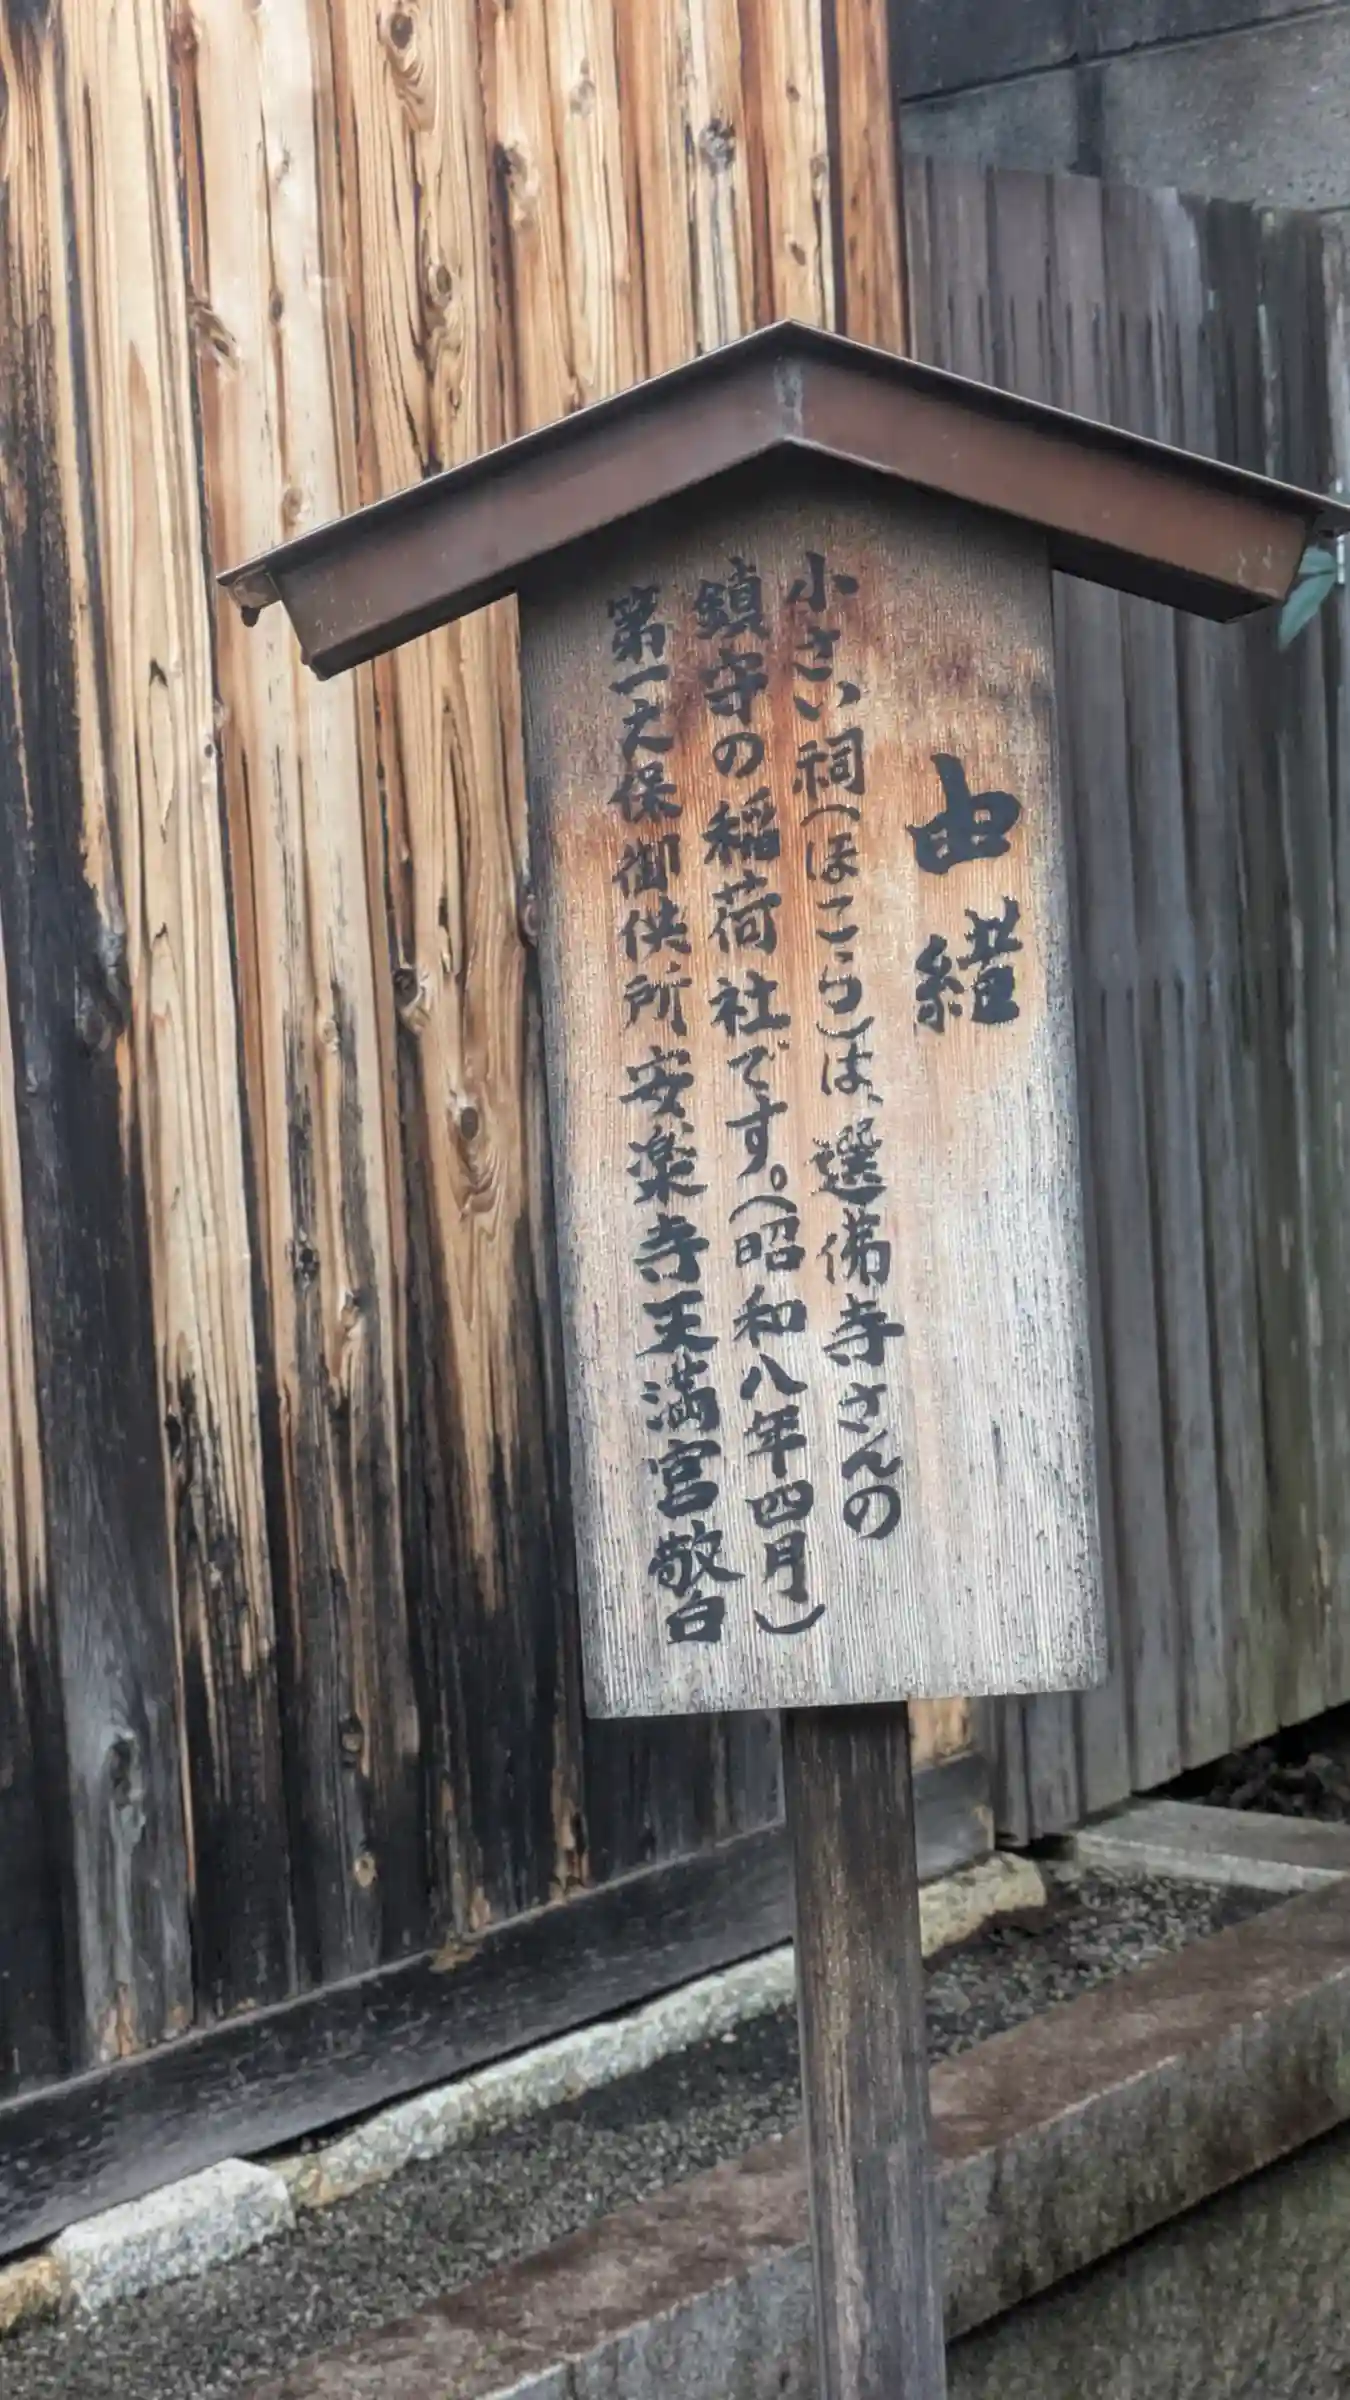 由縁
小さい祠(ほこら)は、選佛寺さんの
鎮守の稲荷社です。(昭和八年四月)
第一大保御供所安楽寺天満宮敬白